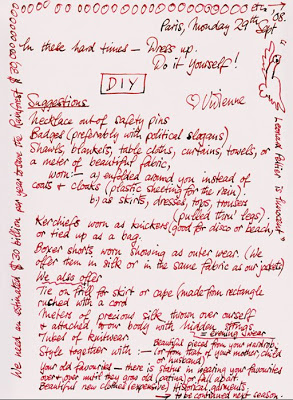 Paris, Monday 29th Sept '08.
In these hard times – Dress up.
Do it Yourself!
DIY
♡ Vivienne
Suggestions
Necklace out of safety pins
Badges (preferably with political slogans)
Shawls, blankets, table cloths, curtains, towels, or
a meter of beautiful fabric,
worn:– a) enfolded around you instead of
coats & cloaks (plastic sheeting for the rain).
b) as skirts, dresses, tops, trousers
(pulled thro' legs).
Kerchiefs worn as knickers (good for disco or beach),
or tied up as a bag.
Boxer shorts, worn showing as outer wear (We
offer them in silk or in the same fabric as our jackets)
We also offer
Tie on frill for skirt or cape (made from rectangle
ruched with a cord
Meters of precious silk thrown over ourself
& attached to our body with hidden strings
= evening wear
Tubes of knitwear
Style together with :–
Beautiful pieces from your wardrobe
(or from that of your mother, child
or husband)
Your old favourites – there is status in wearing your favourites
over & over until they grow old (patina) or fall apart.
Beautiful new clothes (expensive) Historical garments.
→ to be continued next season.
We need an estimated $30 billion per year to save the Rainforest $30,000000000
Leonard Peltier is innocent